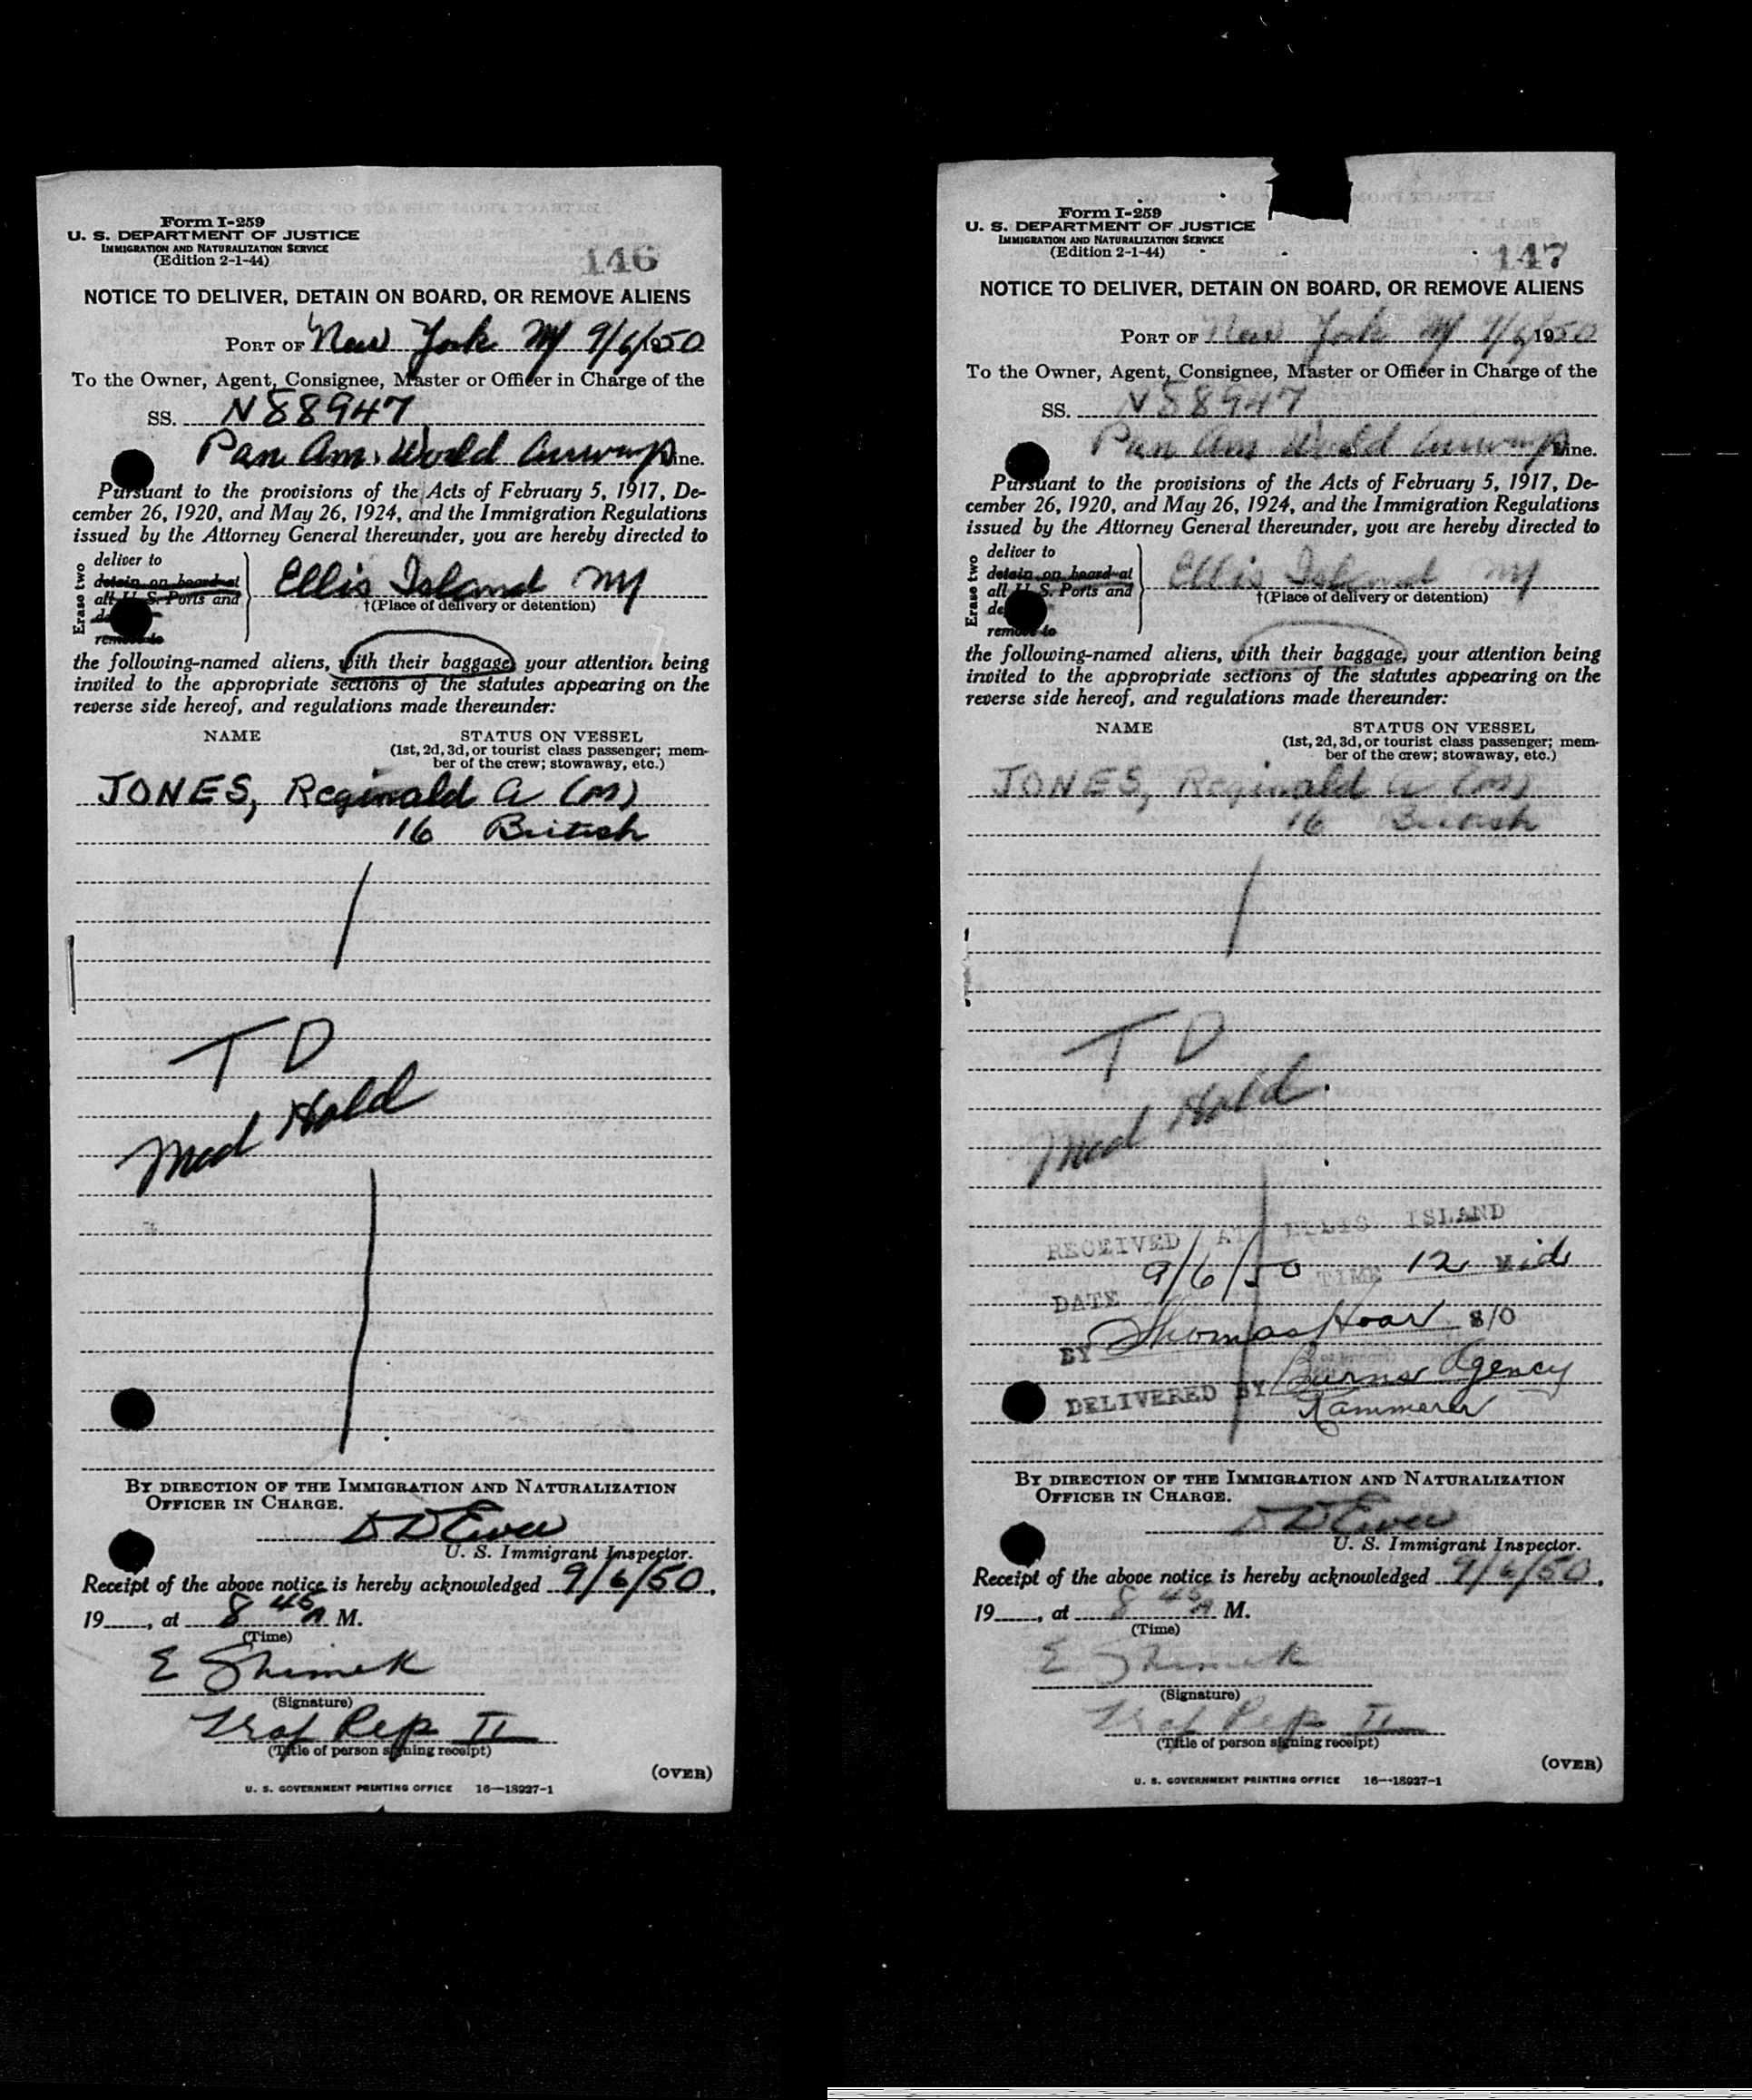 Form I-259
U. S. DEPARTMENT OF JUSTICE
IMMIGRATION AND NATURALIZATION SERVICE
(Edition 2-1-44)
146
NOTICE TO DELIVER, DETAIN ON BOARD, OR REMOVE ALIENS
PORT OF New York NY 9/6/1950
To the Owner, Agent, Consignee, Master or Officer in Charge of the
SS. N88947
Pan Am. World Airways Line.
Pursuant to the provisions of the Acts of February 5, 1917, De-
cember 26, 1920, and May 26, 1924, and the Immigration Regulations
issued by the Attorney General thereunder, you are hereby directed to
Erase two
deliver to
detain on board at
all U. S. Ports and
remove to
Ellis Island NY
†(Place of delivery or detention)
the following-named aliens, with their baggage, your attention being
invited to the appropriate sections of the statutes appearing on the
reverse side hereof, and regulations made thereunder:
NAME STATUS ON VESSEL
(1st, 2d, 3d, or tourist class passenger; mem-
ber of the crew; stowaway, etc.)
JONES, Reginald A (M)
16 British
T D
Med Hold
BY DIRECTION OF THE IMMIGRATION AND NATURALIZATION
OFFICER IN CHARGE.
U. S. Immigrant Inspector.
Receipt of the above notice is hereby acknowledged 9/6/50,
19____, at 8 45 A M.
(Time)
E Shimek
(Signature)
Traf Rep II
(Title of person signing receipt)
(OVER)
U. S. GOVERNMENT PRINTING OFFICE 16—18927-1
Form I-259
U. S. DEPARTMENT OF JUSTICE
IMMIGRATION AND NATURALIZATION SERVICE
(Edition 2-1-44)
147
NOTICE TO DELIVER, DETAIN ON BOARD, OR REMOVE ALIENS
PORT OF New York NY 9/6/1950
To the Owner, Agent, Consignee, Master or Officer in Charge of the
SS. N88947
Pan Am World Airways Line.
Pursuant to the provisions of the Acts of February 5, 1917, De-
cember 26, 1920, and May 26, 1924, and the Immigration Regulations
issued by the Attorney General thereunder, you are hereby directed to
Erase two
deliver to
detain on board at
all U. S. Ports and
remove to
Ellis Island NY
†(Place of delivery or detention)
the following-named aliens, with their baggage, your attention being
invited to the appropriate sections of the statutes appearing on the
reverse side hereof, and regulations made thereunder:
NAME STATUS ON VESSEL
(1st, 2d, 3d, or tourist class passenger; mem-
ber of the crew; stowaway, etc.)
JONES, Reginald A (M)
16 British
T D
Med Hold
RECEIVED AT ELLIS ISLAND
DATE 9/6/50 TIME 12 Mid
BY Thomas Hoar S/O
DELIVERED BY Burns Agency
Kammerer
BY DIRECTION OF THE IMMIGRATION AND NATURALIZATION
OFFICER IN CHARGE.
U. S. Immigrant Inspector.
Receipt of the above notice is hereby acknowledged 9/6/50,
19____, at 8 45 A M.
(Time)
E Shimek
(Signature)
Traf Rep II
(Title of person signing receipt)
(OVER)
U. S. GOVERNMENT PRINTING OFFICE 16—18927-1